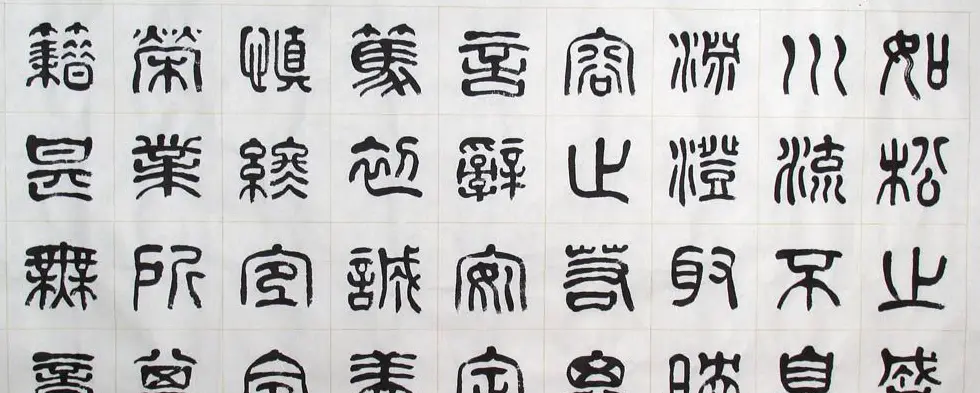 如松之盛
川流不息
淵澄取映
容止若思
言辭安定
篤初誠美
慎終宜令
榮業所基
籍甚無竟